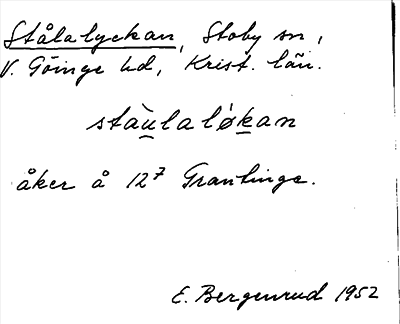 Stålalyckan, Stoby sn,
V. Göinge hd, Krist. län.
stàu̲laløk̲an
åker å 12⁷ Grantinge.
E. Bergenrud 1952